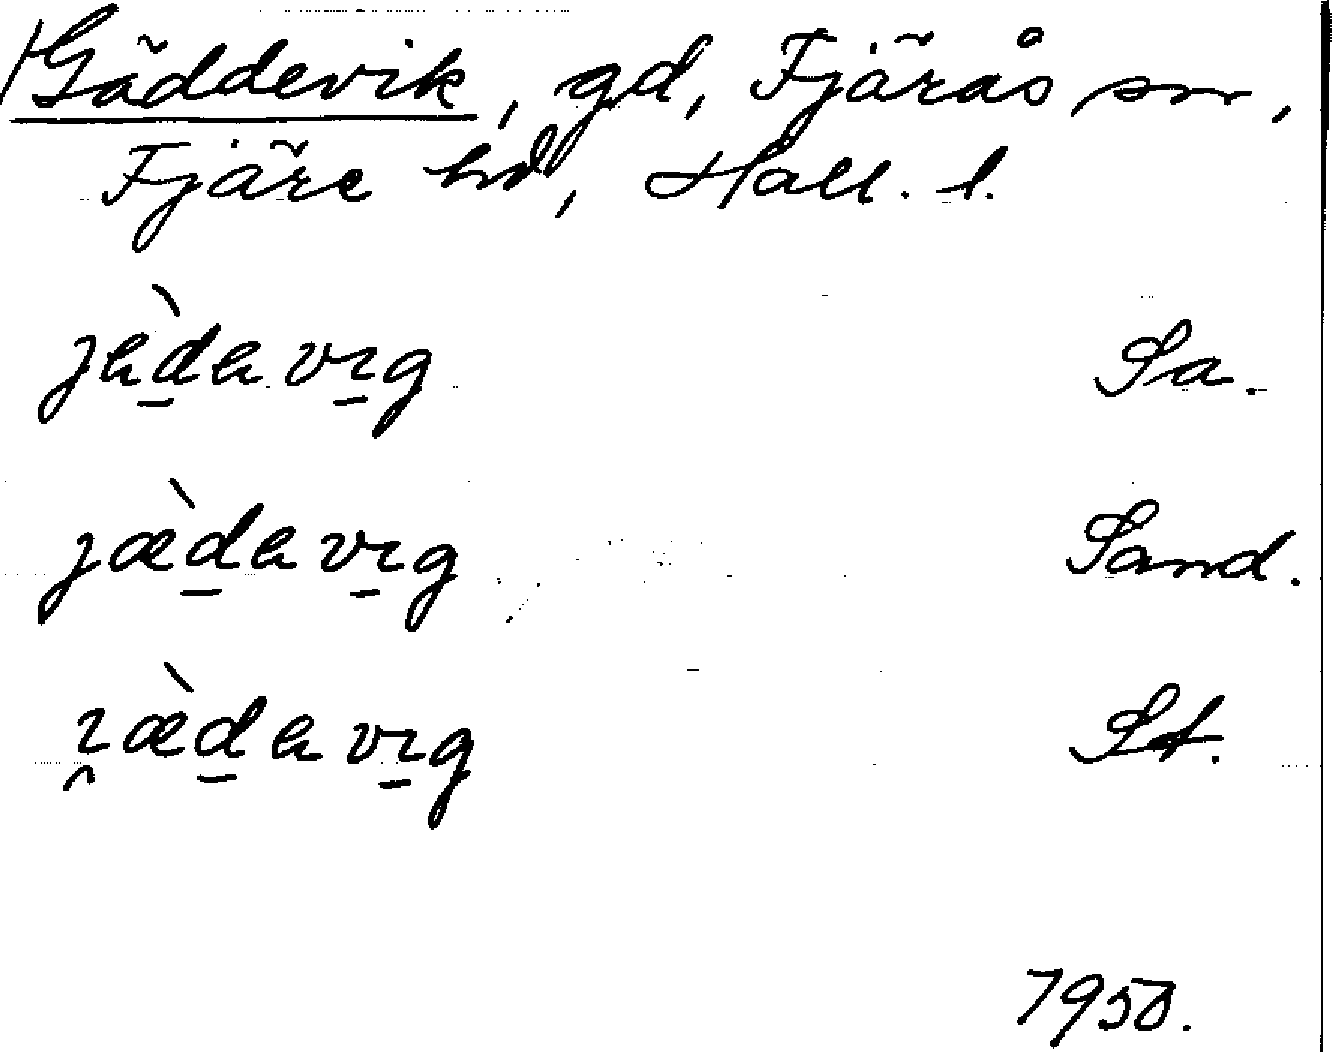 Gäddevik, gd, Fjärås sn,
Fjäre hd, Hall. l.
jàd̲a vɪ̲g Sa.
jæ̀d̲a vɪ̲g Sand.
ɪ̯æ̀d̲a vɪ̲g St.
1950.